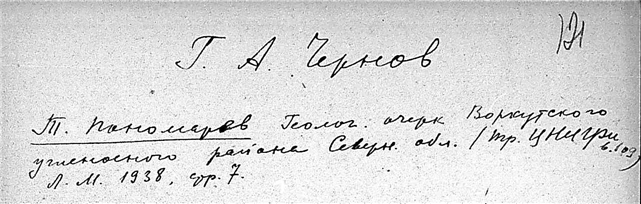 121
Г. А. Чернов
Т. Пономарев Геолог. очерк Воркутского
угленосного района Северн. обл. (тр. ЦНИГРИ
в. 109)
Л. М. 1938, стр. 7.